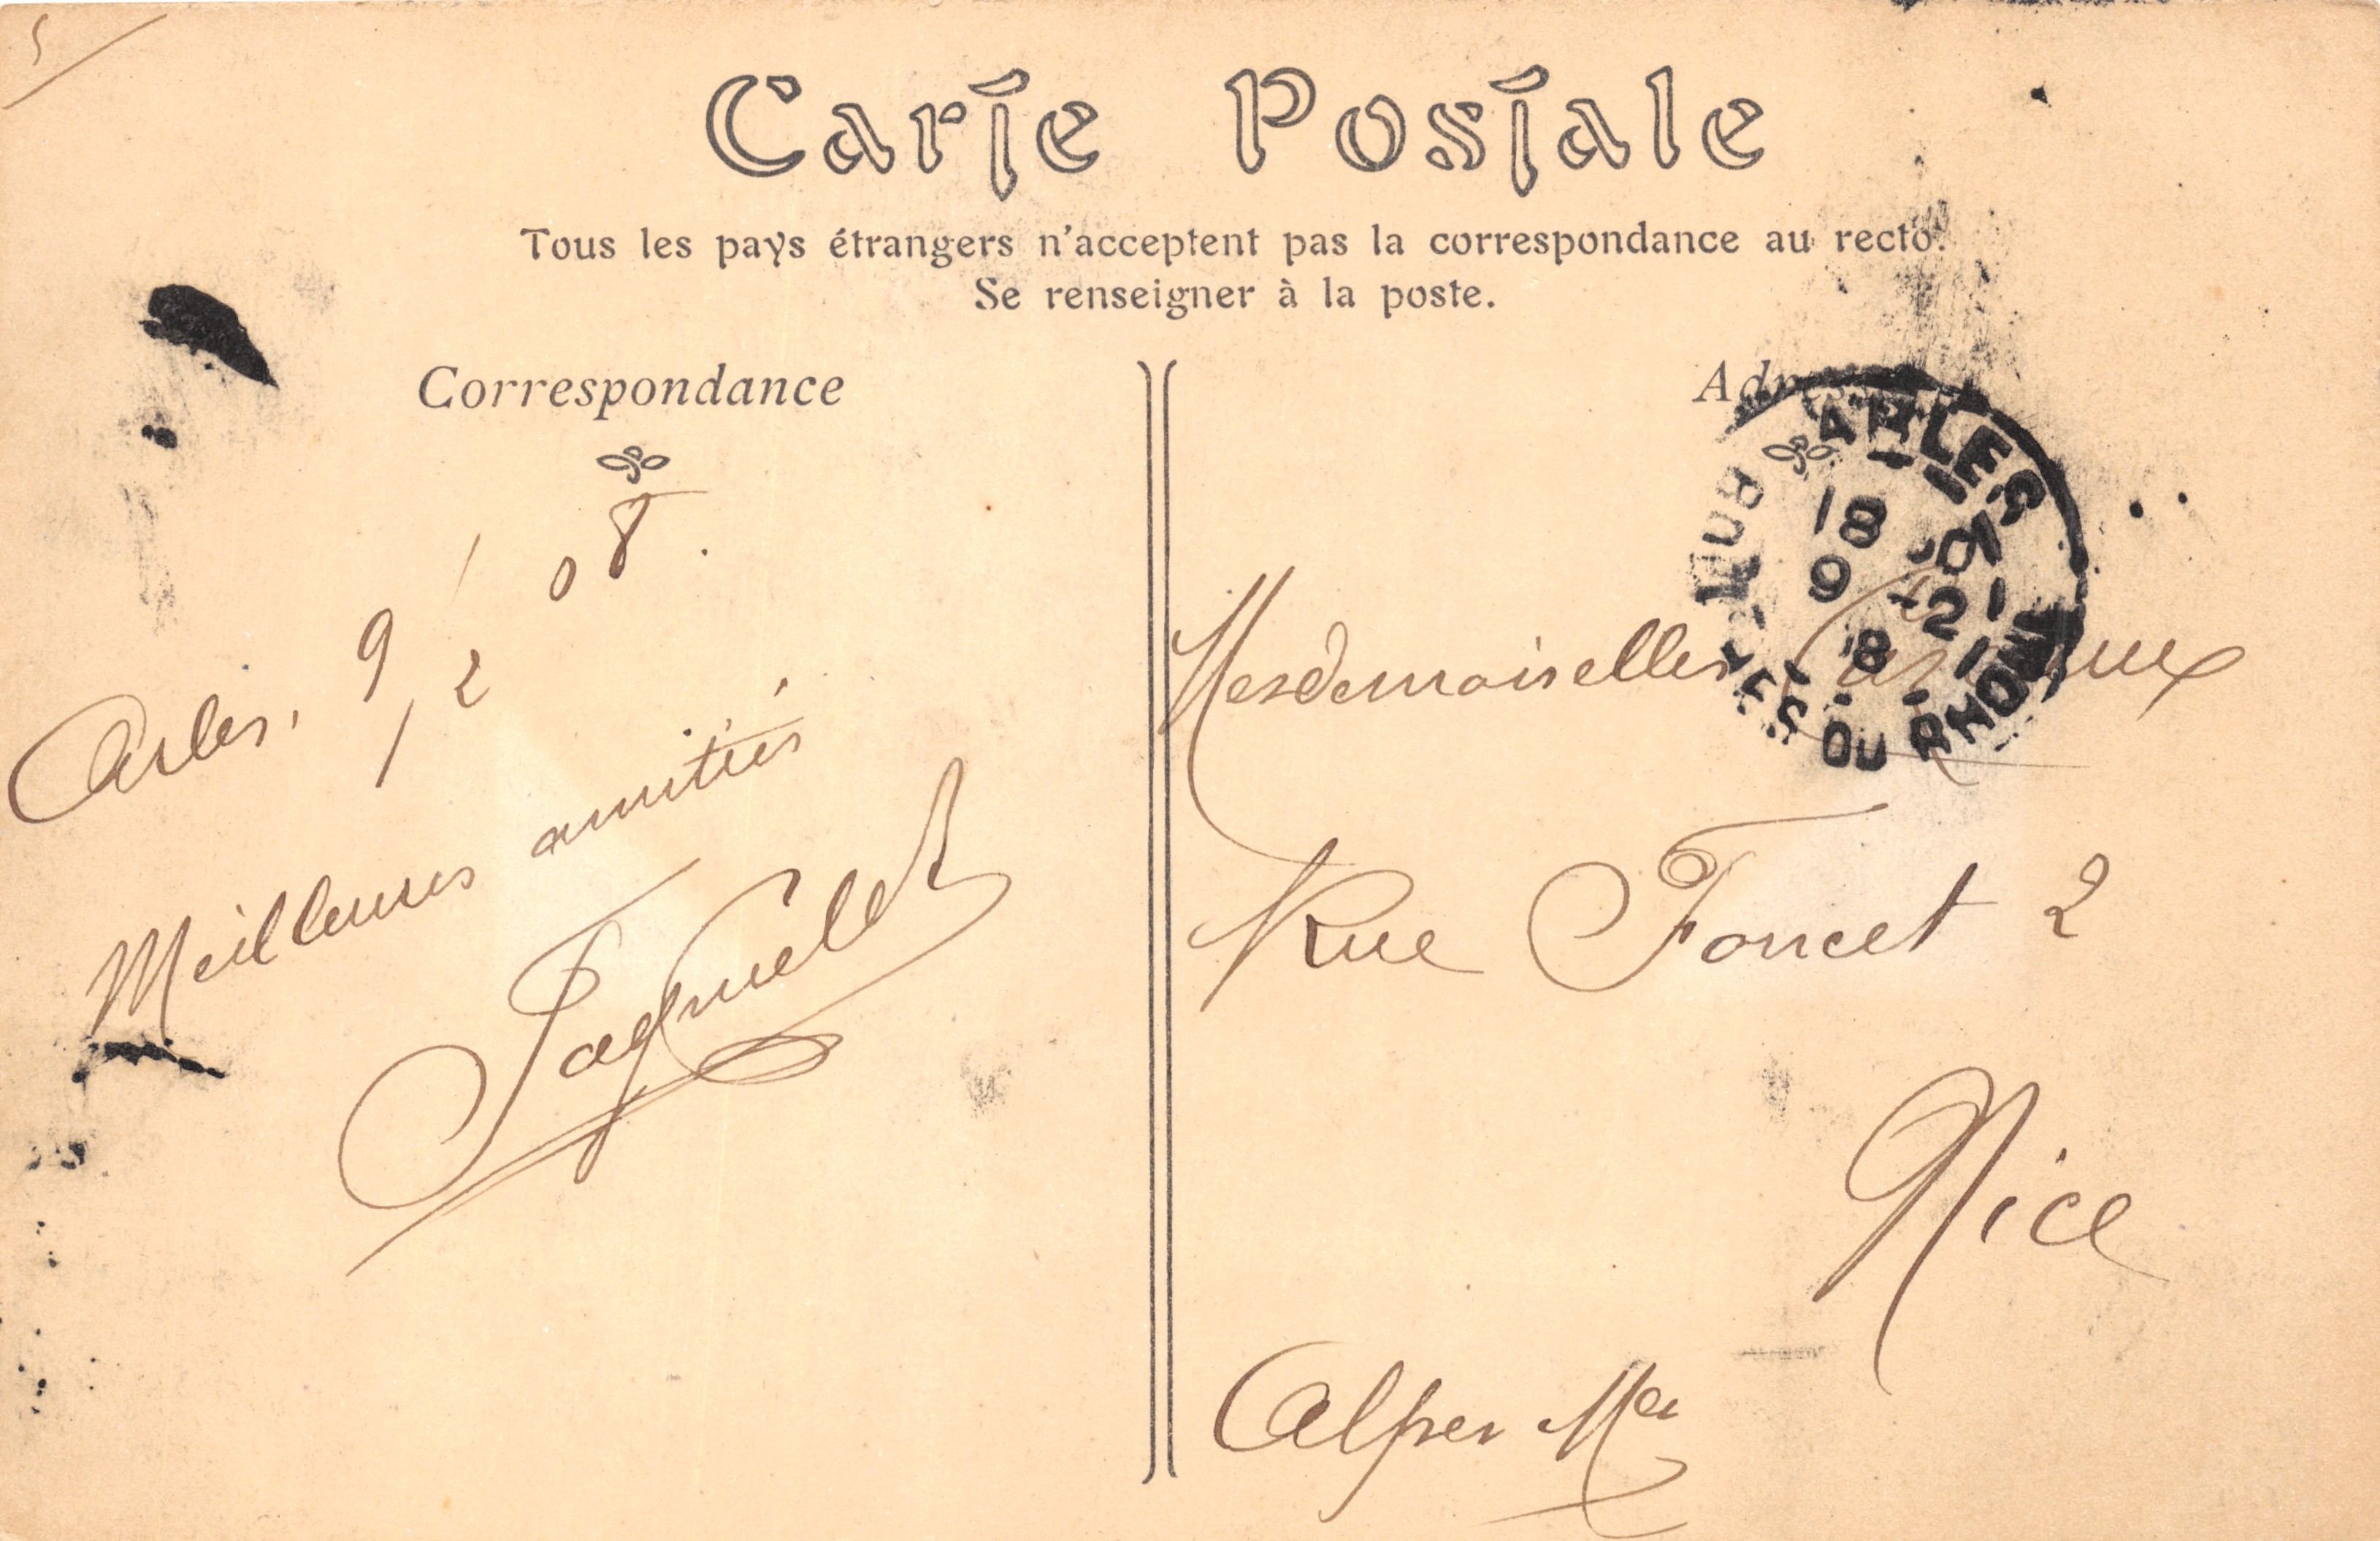 Carte Postale
Tous les pays étrangers n'acceptent pas la correspondance au recto.
Se renseigner à la poste.
Correspondance
Arles, 9/2 08.
Meilleures amitiés
Adresse
ARLES
BOUCHES DU RHONE
18
9 -2
8
Mesdemoiselles
Rue Foncet 2
Nice
Alpes Mes